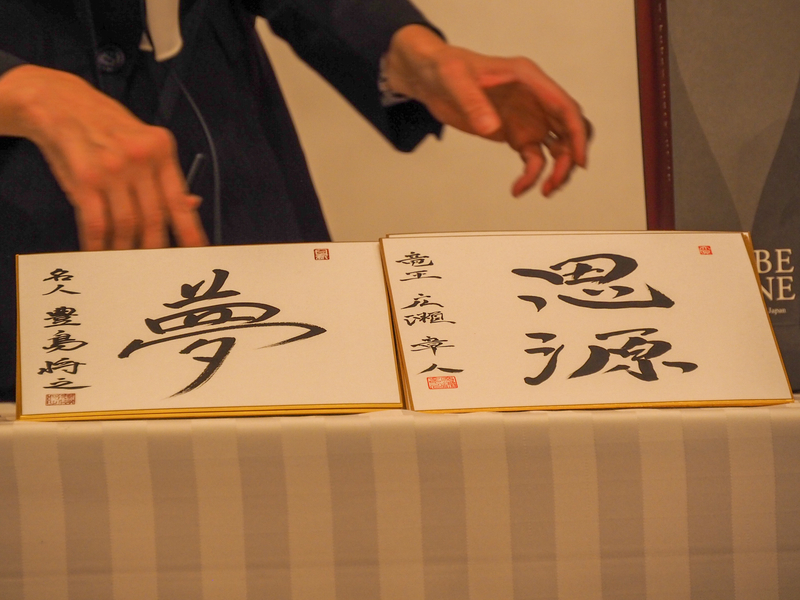 夢
名人 豊島将之
思源
竜王 広瀬章人
BE
NE
Japan